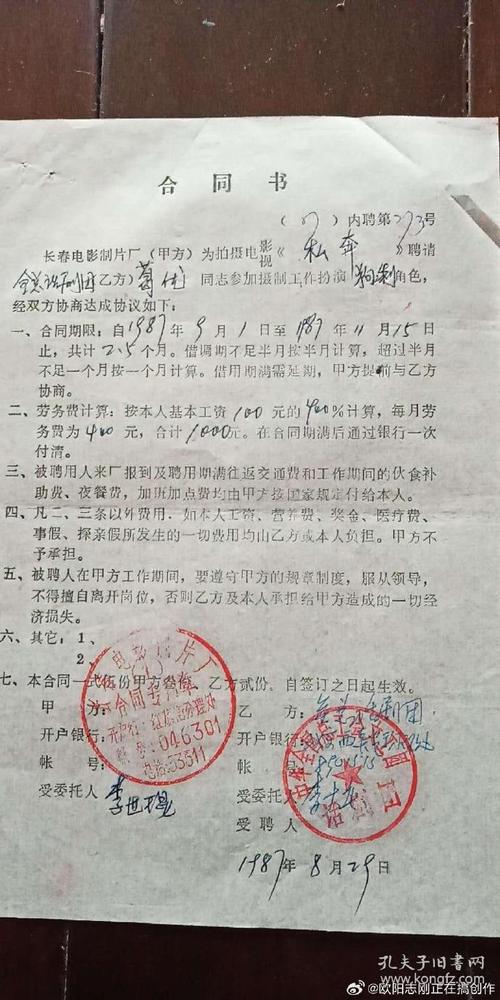 合同书
(87)内聘第273号
长春电影制片厂(甲方)为拍摄电影视《私奔》聘请
全总话剧团(乙方)葛优同志参加摄制工作扮演 角色,
经双方协商达成协议如下:
一、合同期限:自1987年9月1日至1987年11月15日
止,共计2.5个月。借调期不足半月按半月计算,超过半月
不足一个月按一个月计算。借用期满需延期,甲方提前与乙方
协商。
二、劳务费计算:按本人基本工资100元的400%计算,每月劳
务费为400元,合计1000元。在合同期满后通过银行一次
付清。
三、被聘用人来厂报到及聘用期满往返交通费和工作期间的伙食补
助费、夜餐费,加班加点费均由甲方按国家规定付给本人。
四、凡二、三条以外费用,如本人工资、营养费、奖金、医疗费、
事假、探亲假所发生的一切费用均由乙方或本人负担。甲方不
予承担。
五、被聘人在甲方工作期间,要遵守甲方的规章制度,服从领导,
不得擅自离开岗位,否则乙方及本人承担给甲方造成的一切经
济损失。
六、其它:1、
2、
七、本合同一式伍份甲方叁份,乙方贰份,自签订之日起生效。
甲方: 乙方:全总话剧团
开户银行: 开户银行:
帐号: 帐号:
受委托人 受委托人
受聘人
电影制片厂
合同专用章
开户行:红旗街办理处
帐号:046301
电话:53311
中华全国总工会
话剧团
1987年8月29日
孔夫子旧书网
www.kongfz.com
@欧阳志刚正在搞创作